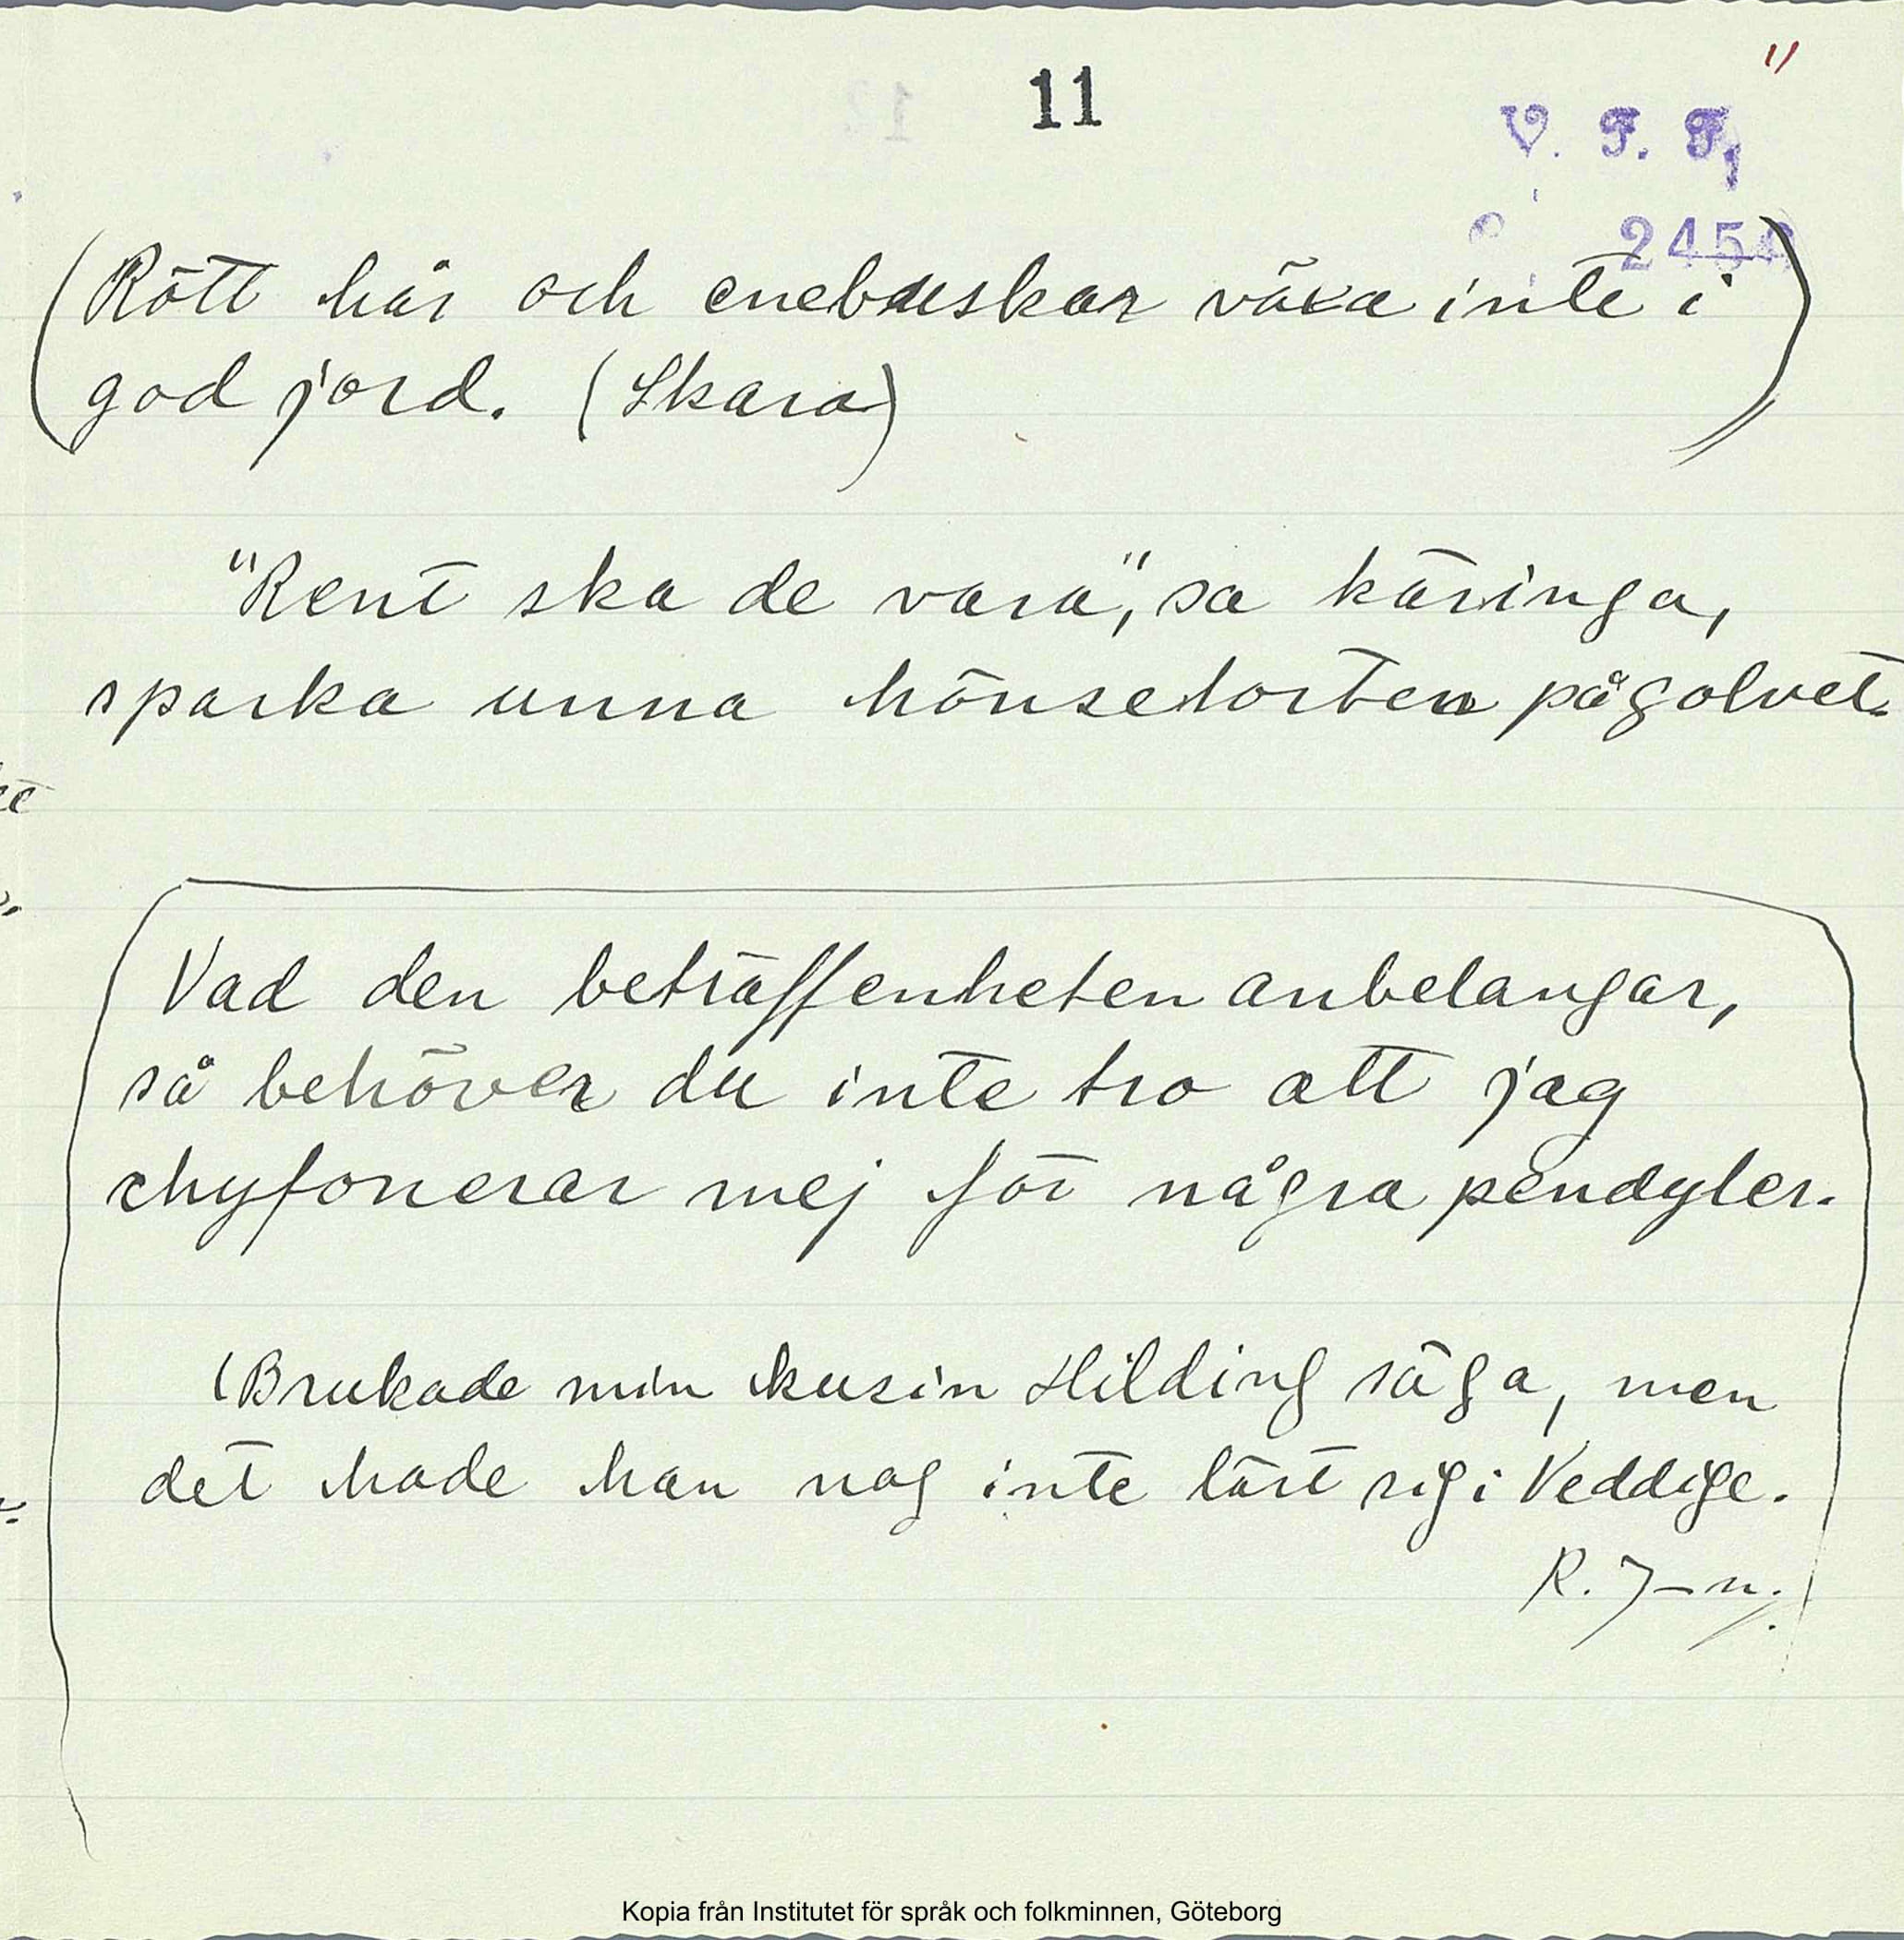 "
11
V. F. F,
245
(Rött hår och enebuskar växa inte i
god jord. (Skara)
"Rent ska de vara", sa käringa,
sparka unna hönselorten på golvet.
Vad den beträffenheten anbelangar,
så behöver du inte tro att jag
chyfonerar mej för några pendyler.
(Brukade min kusin Hilding säga, men
det hade han nog inte lärt sig i Veddige.
R. J–n.)
Kopia från Institutet för språk och folkminnen, Göteborg